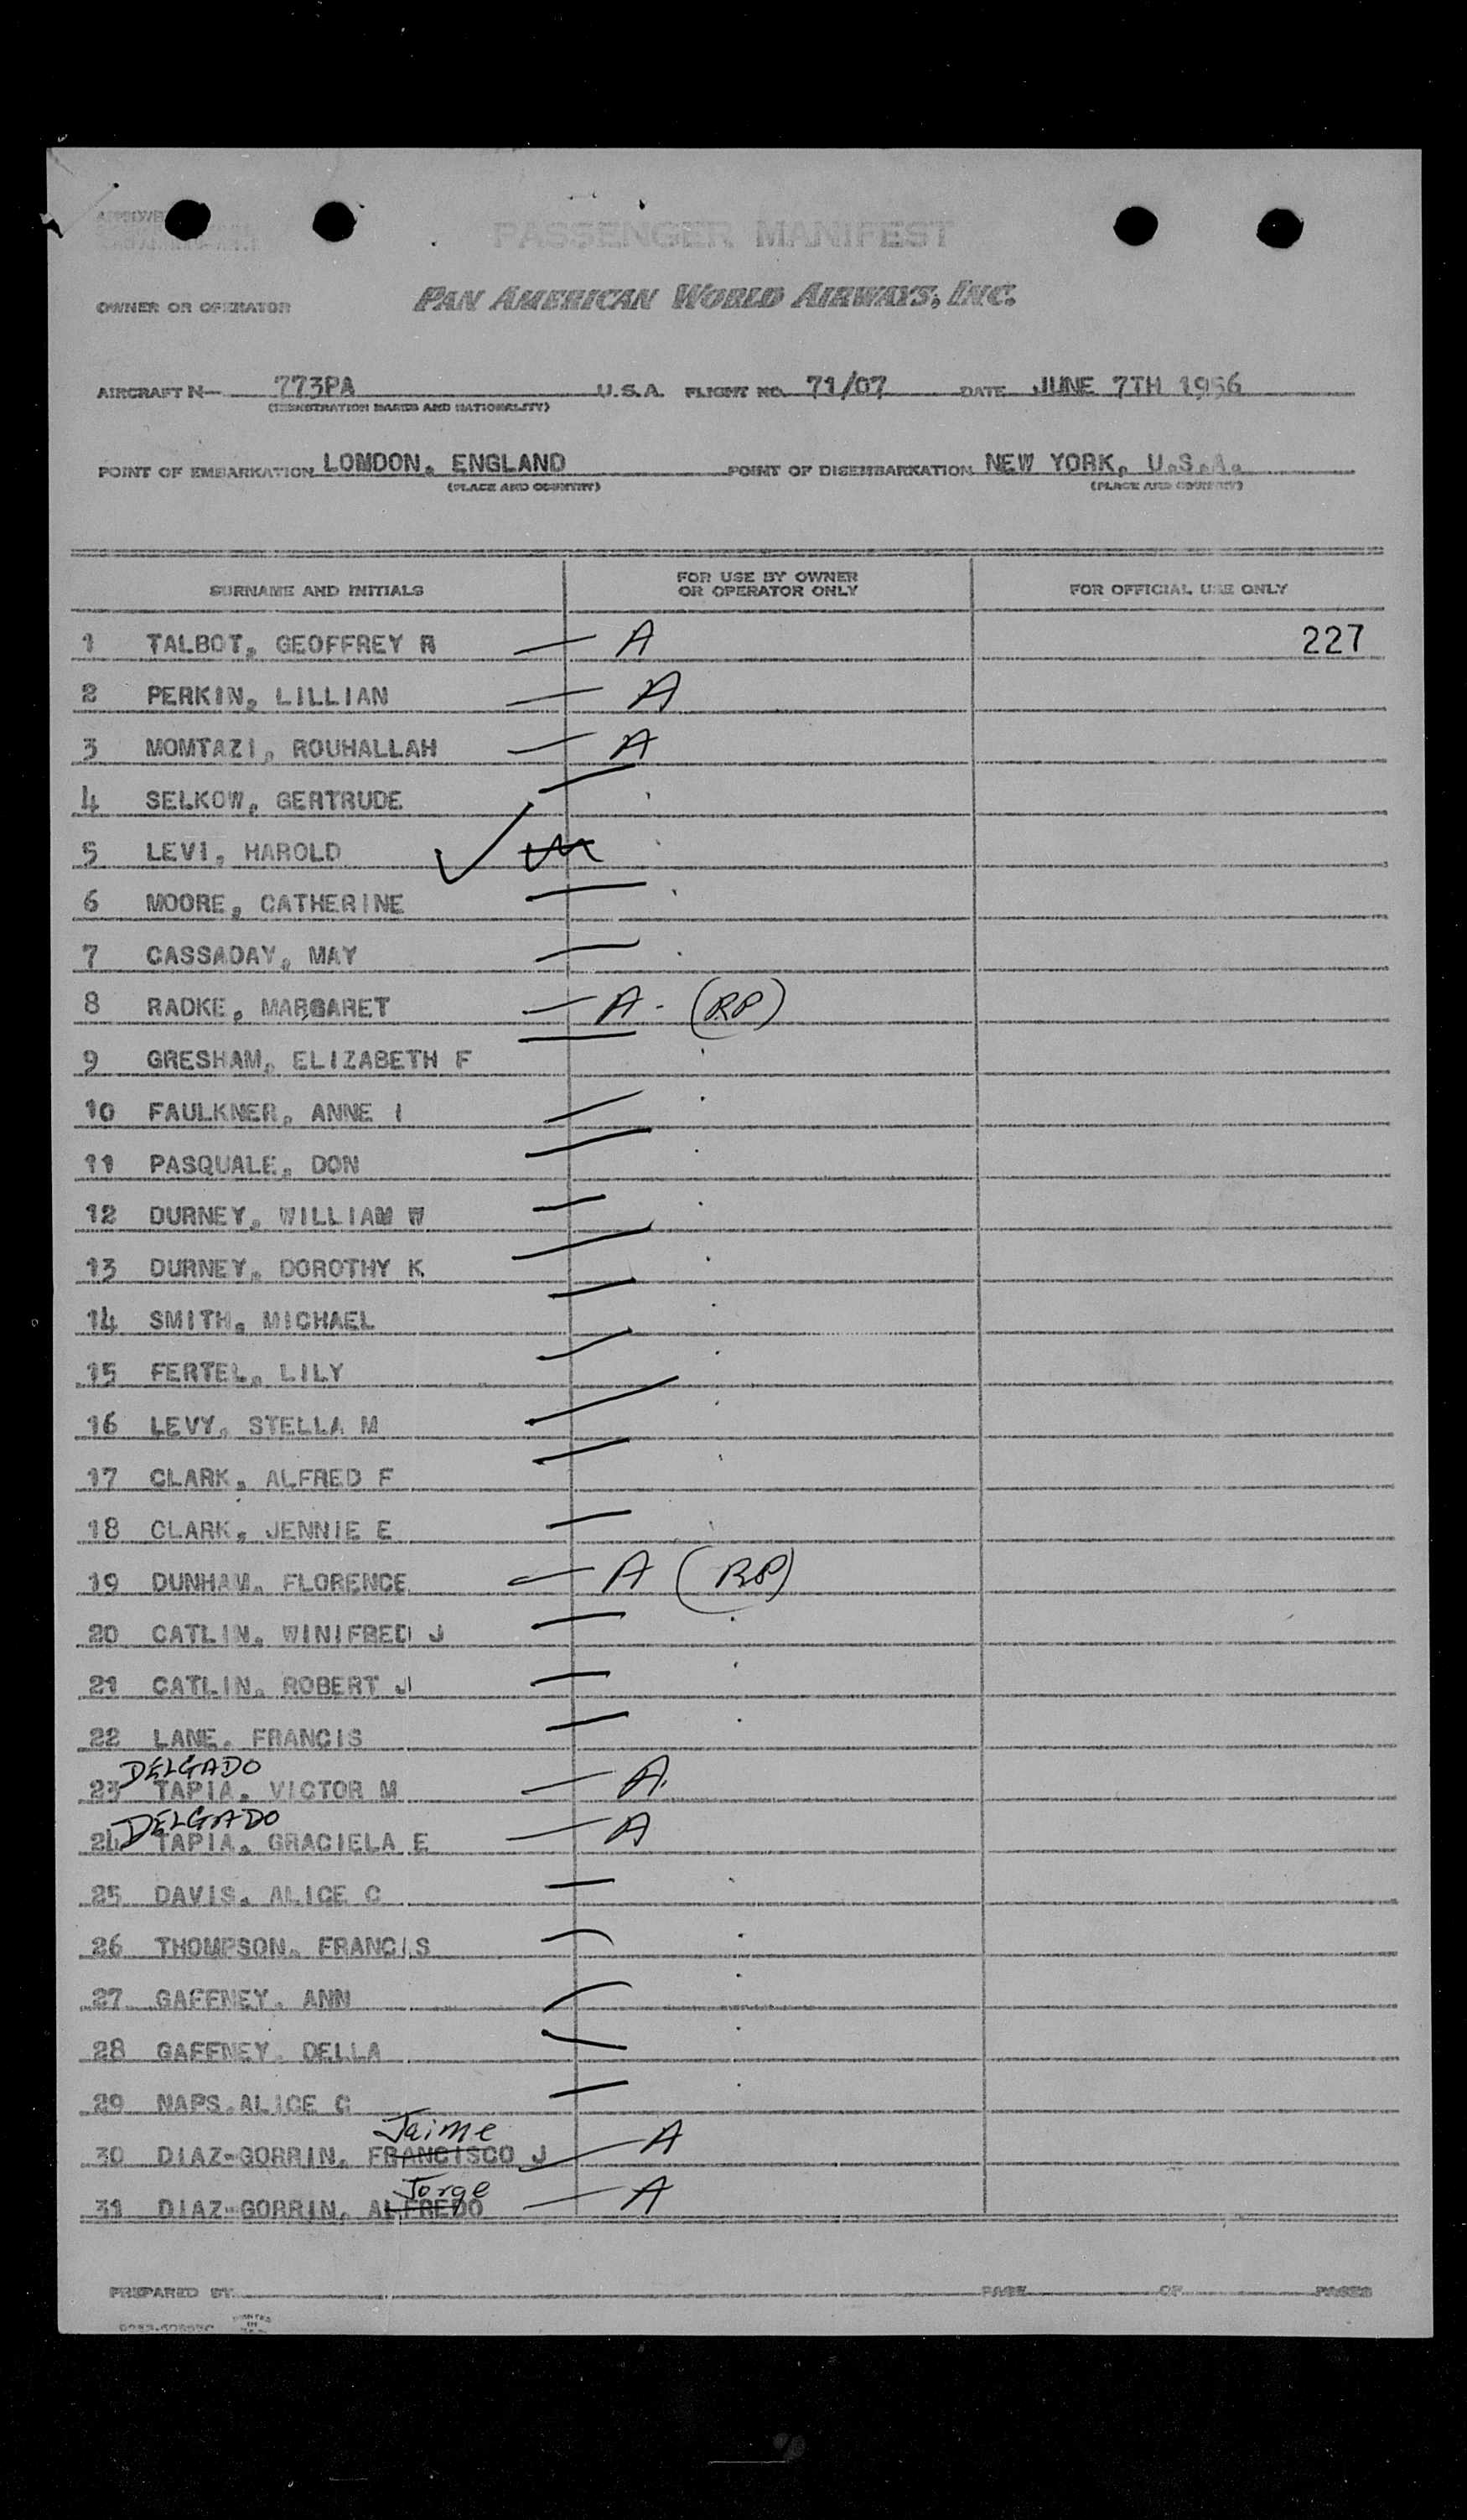 PASSENGER MANIFEST
OWNER OR OPERATOR PAN AMERICAN WORLD AIRWAYS, INC.
AIRCRAFT N— 773PA U.S.A. FLIGHT NO. 71/07 DATE JUNE 7TH 1956
(REGISTRATION MARKS AND NATIONALITY)
POINT OF EMBARKATION LOMDON, ENGLAND POINT OF DISEMBARKATION NEW YORK, U.S.A.
(PLACE AND COUNTRY) (PLACE AND COUNTRY)
SURNAME AND INITIALS FOR USE BY OWNER OR OPERATOR ONLY FOR OFFICIAL USE ONLY
1 TALBOT, GEOFFREY R — A 227
2 PERKIN, LILLIAN — A
3 MOMTAZI, ROUHALLAH — A
4 SELKOW, GERTRUDE
5 LEVI, HAROLD ✓
6 MOORE, CATHERINE
7 CASSADAY, MAY
8 RADKE, MARGARET — A - (RP)
9 GRESHAM, ELIZABETH F
10 FAULKNER, ANNE I
11 PASQUALE, DON
12 DURNEY, WILLIAM W
13 DURNEY, DOROTHY K
14 SMITH, MICHAEL
15 FERTEL, LILY
16 LEVY, STELLA M
17 CLARK, ALFRED F
18 CLARK, JENNIE E
19 DUNHAM, FLORENCE — A (RP)
20 CATLIN, WINIFRED J
21 CATLIN, ROBERT J
22 LANE, FRANCIS
DELGADO
23 TAPIA, VICTOR M — A
DELGADO
24 TAPIA, GRACIELA E — A
25 DAVIS, ALICE C
26 THOMPSON, FRANCIS
27 GAFFNEY, ANN
28 GAFFNEY, DELLA
29 NAPS, ALICE C
Jaime
30 DIAZ-GORRIN, FRANCISCO J — A
Jorge
31 DIAZ-GORRIN, ALFREDO — A
PREPARED BY PAGE OF PAGES